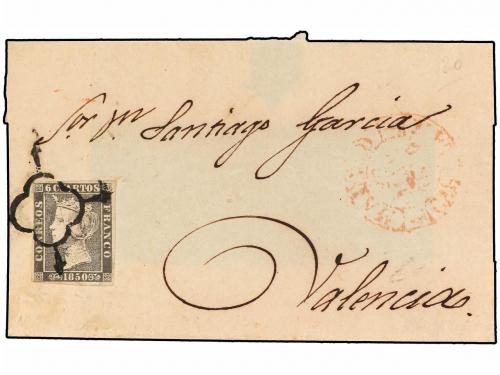 20
Sor Dn Santiago Garcia
6 CUARTOS
CORREOS
FRANCO
1850
Valencia.